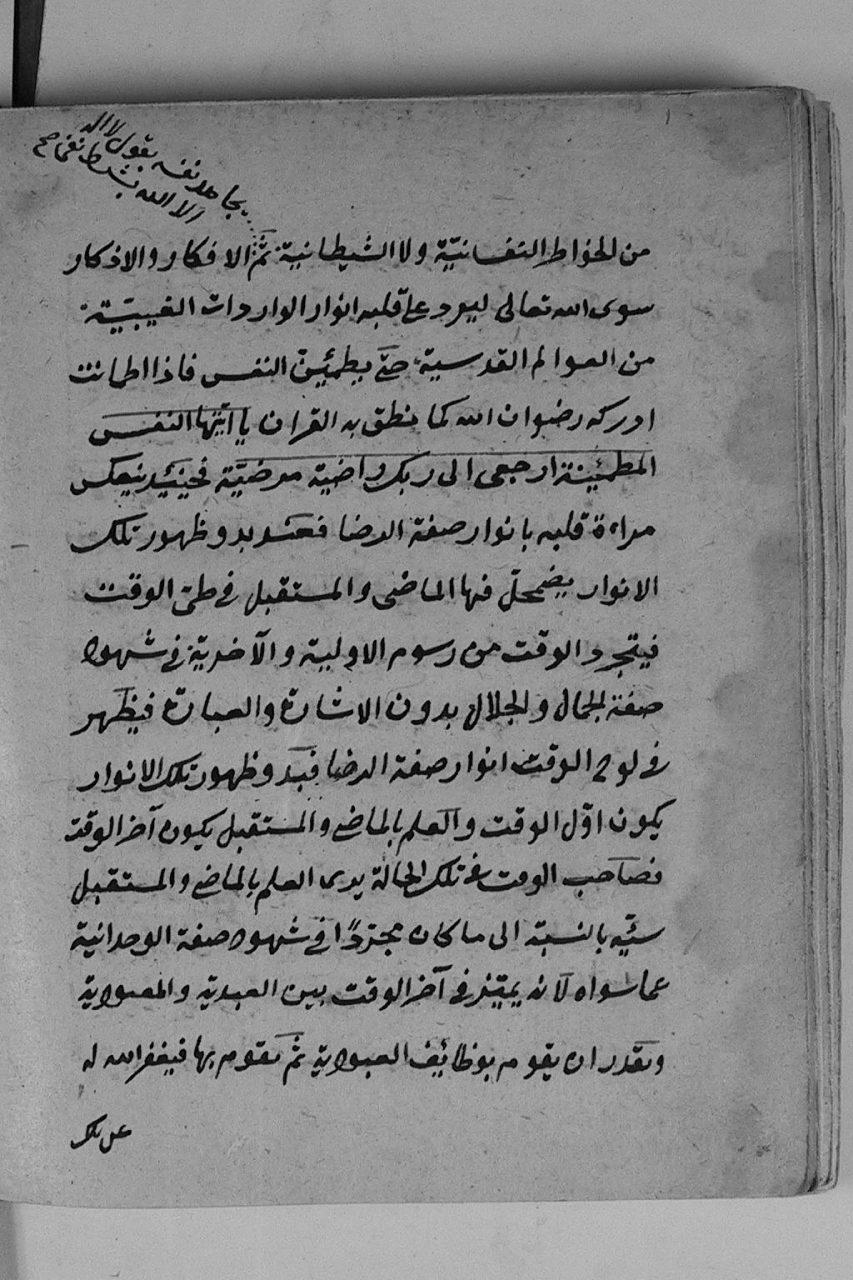 يجاهد نفسه بقول لا اله
الا الله بشرط نفى صح
من الخواطر النفسانيّة ولا الشيطانية ثمّ الافكار والاذكار
سوى الله تعالى ليرد على قلبه انوار الواردات الغيبيّة
من العوالم القدسية حتى يطمئنّ النفس فاذا اطمانت
ادركه رضوان الله كما ينطق به القران يا ايّتها النفس
المطمئنة ارجعى الى ربك راضية مرضيّة فحينئيذ ينعكس
مراءة قلبه بانوار صفة الرضا فعند بدو ظهور تلك
الانوار يضمحلّ فيها الماضى والمستقبل فى طىّ الوقت
فيتجرد الوقت من رسوم الاولية والآخرية فى شهود
صفة الجمال والجلال بدون الاشارة والعبارة فيظهر
فى لوح الوقت انوار صفة الرضا فبدو ظهور تلك الانوار
يكون اوّل الوقت والعلم بالماضى والمستقبل يكون آخر الوقت
فصاحب الوقت فى تلك الحالة يرى العلم بالماضى والمستقبل
سيّه بالنسبة الى ما كان مجرّدًا فى شهود صفة الوحدانية
عما سواه لانه يميّز فى آخر الوقت بين العبدية والمعبودية
ويقدر ان يقوم بوظائف العبودية ثمّ يقوم بها فيغفر الله له
عن تلك